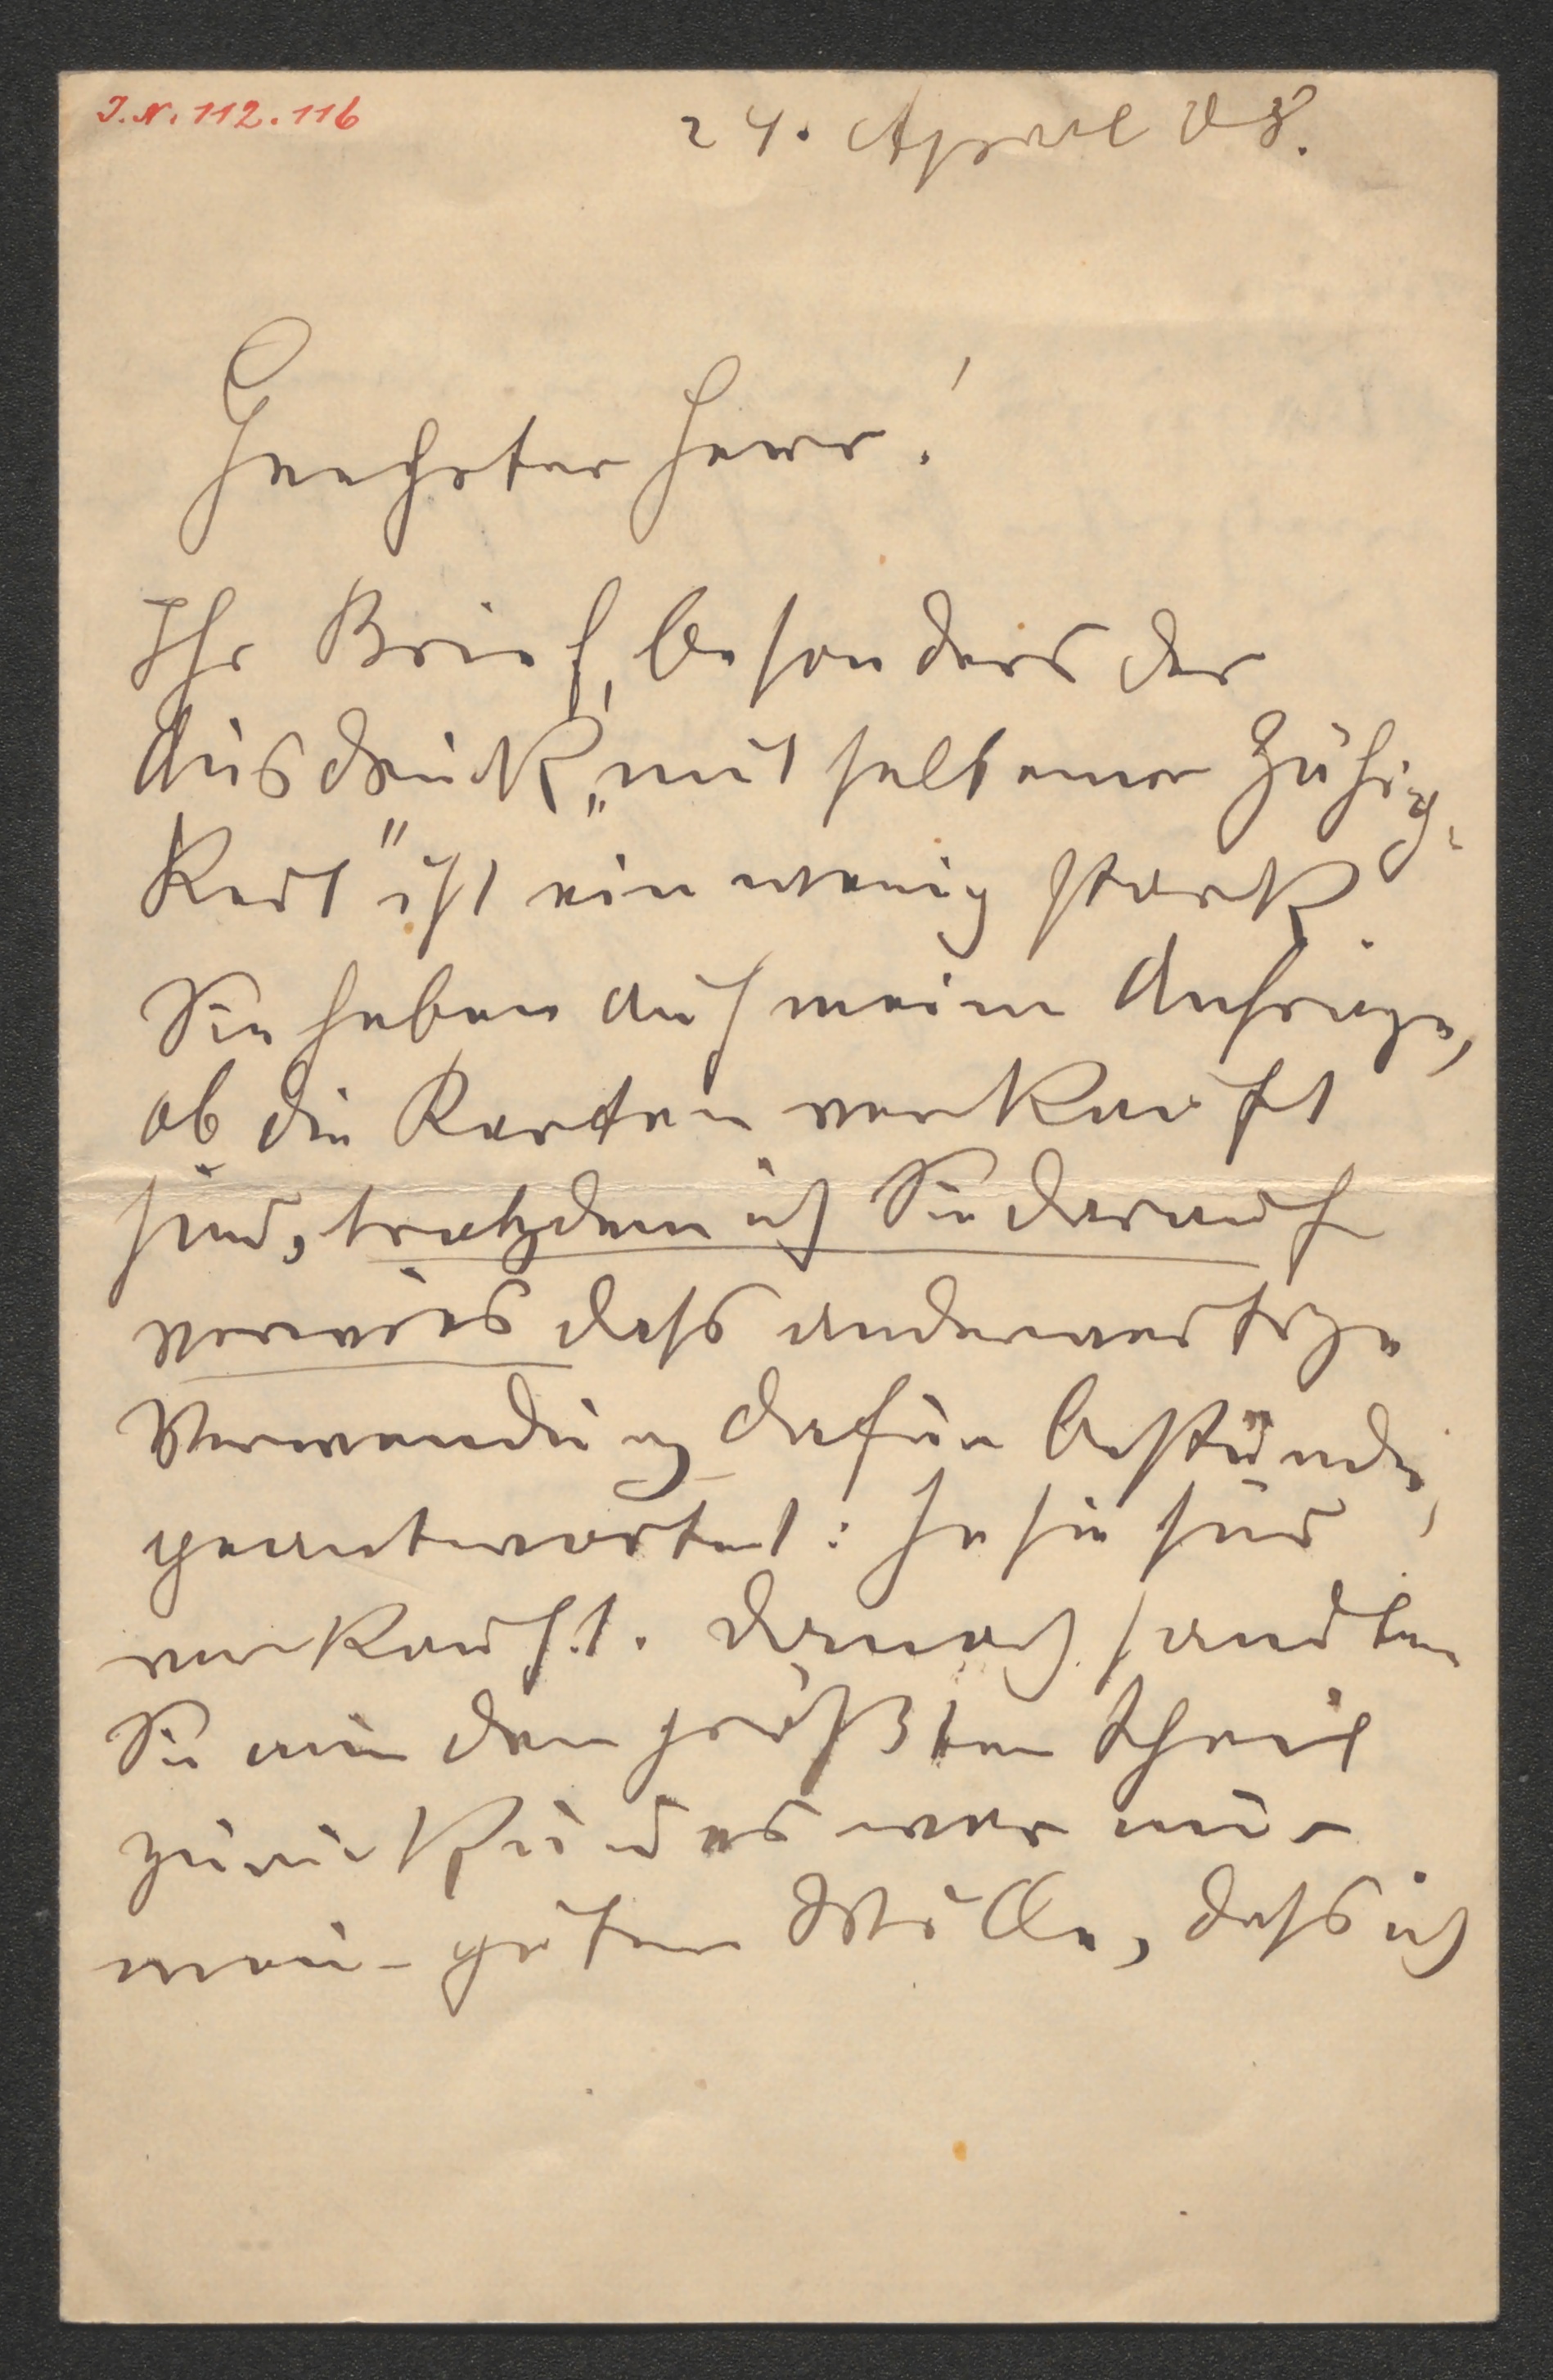 I.N. 112.116
24. April 08.
Geehrter Herr!
Ihr Brief, besonders der
Ausdruck „mit seltener Zähig-
keit" ist ein wenig stark.
Sie haben auf meine Anfrage,
ob die Karten verkauft
sind, trotzdem ich Sie darauf
verwies dass anderwertige
Verwendung dafür bestünde,
geantwortet: Ja sie sind
verkauft. Darnach sandten
Sie mir den größten Theil
zurück und es war nur
mein guter Wille, dass ich